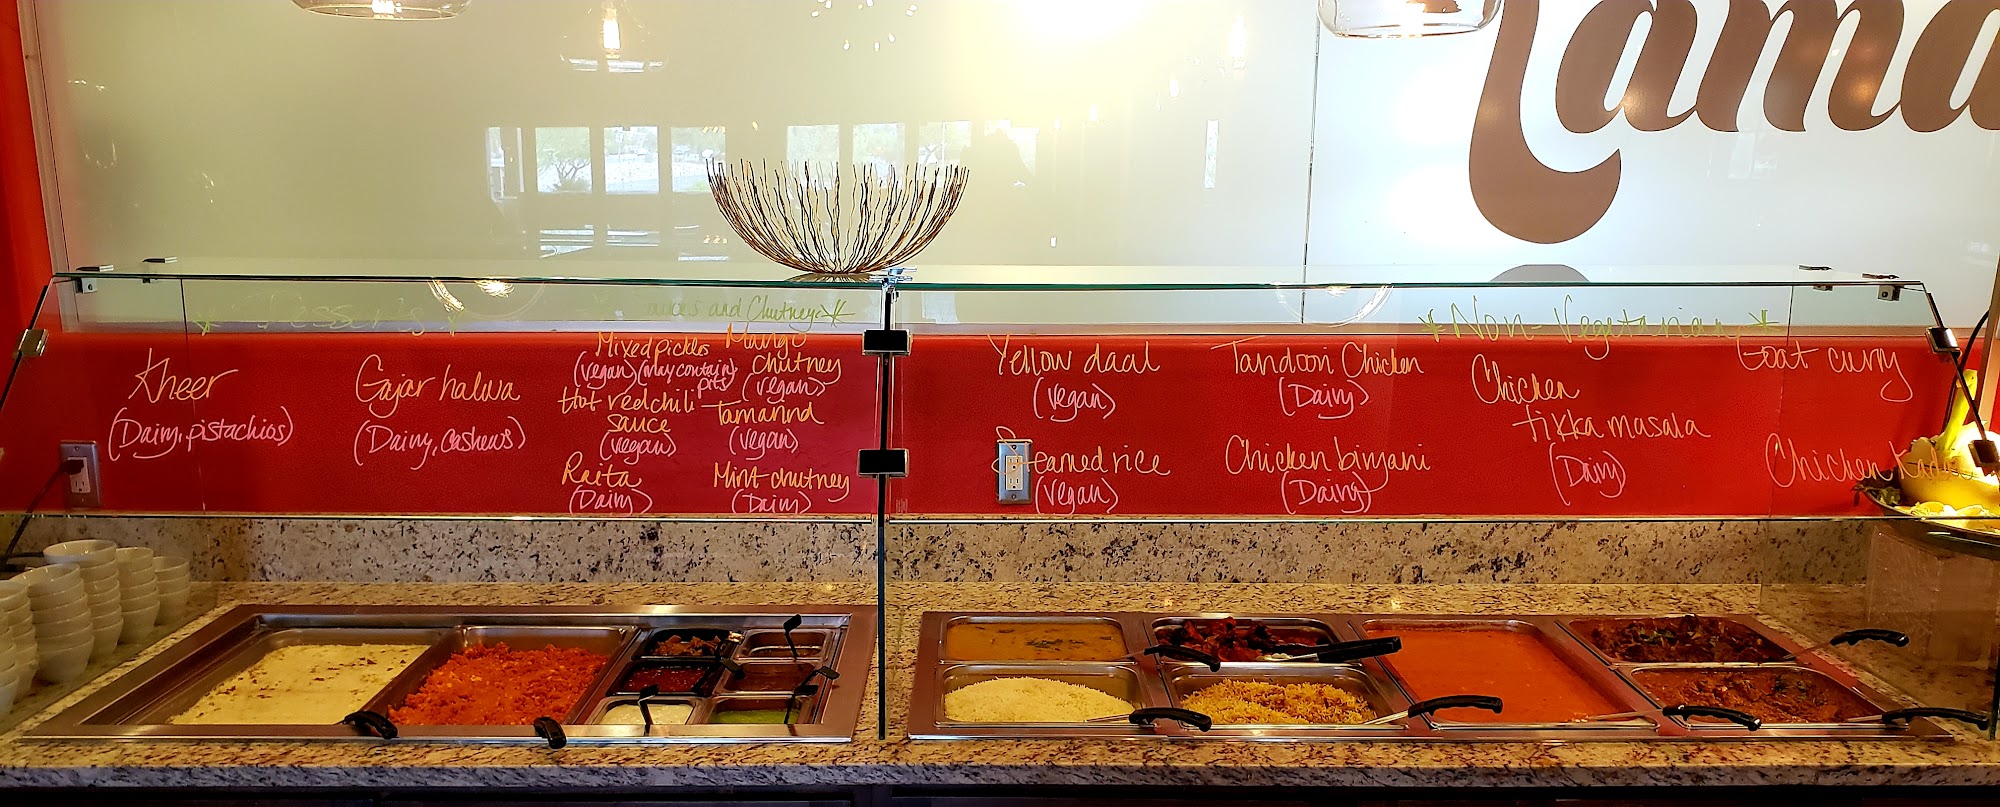 Tama
* Desserts *
Kheer
(Dairy, pistachios)
Gajar halwa
(Dairy, Cashews)
* Sauces and Chutneys *
Mixed pickles
(vegan) (may contain
pits)
Hot red chili
sauce
(vegan)
Raita
(Dairy)
Mango
chutney
(vegan)
Tamarind
(vegan)
Mint chutney
(Dairy)
Yellow daal
(vegan)
Steamed rice
(vegan)
* Non-Vegetarian *
Tandoori Chicken
(Dairy)
Chicken biryani
(Dairy)
Chicken
tikka masala
(Dairy)
Goat curry
Chicken